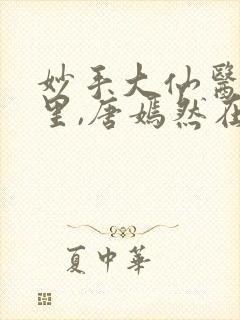 妙手大仙醫
里,唐嫣然在
夏中華